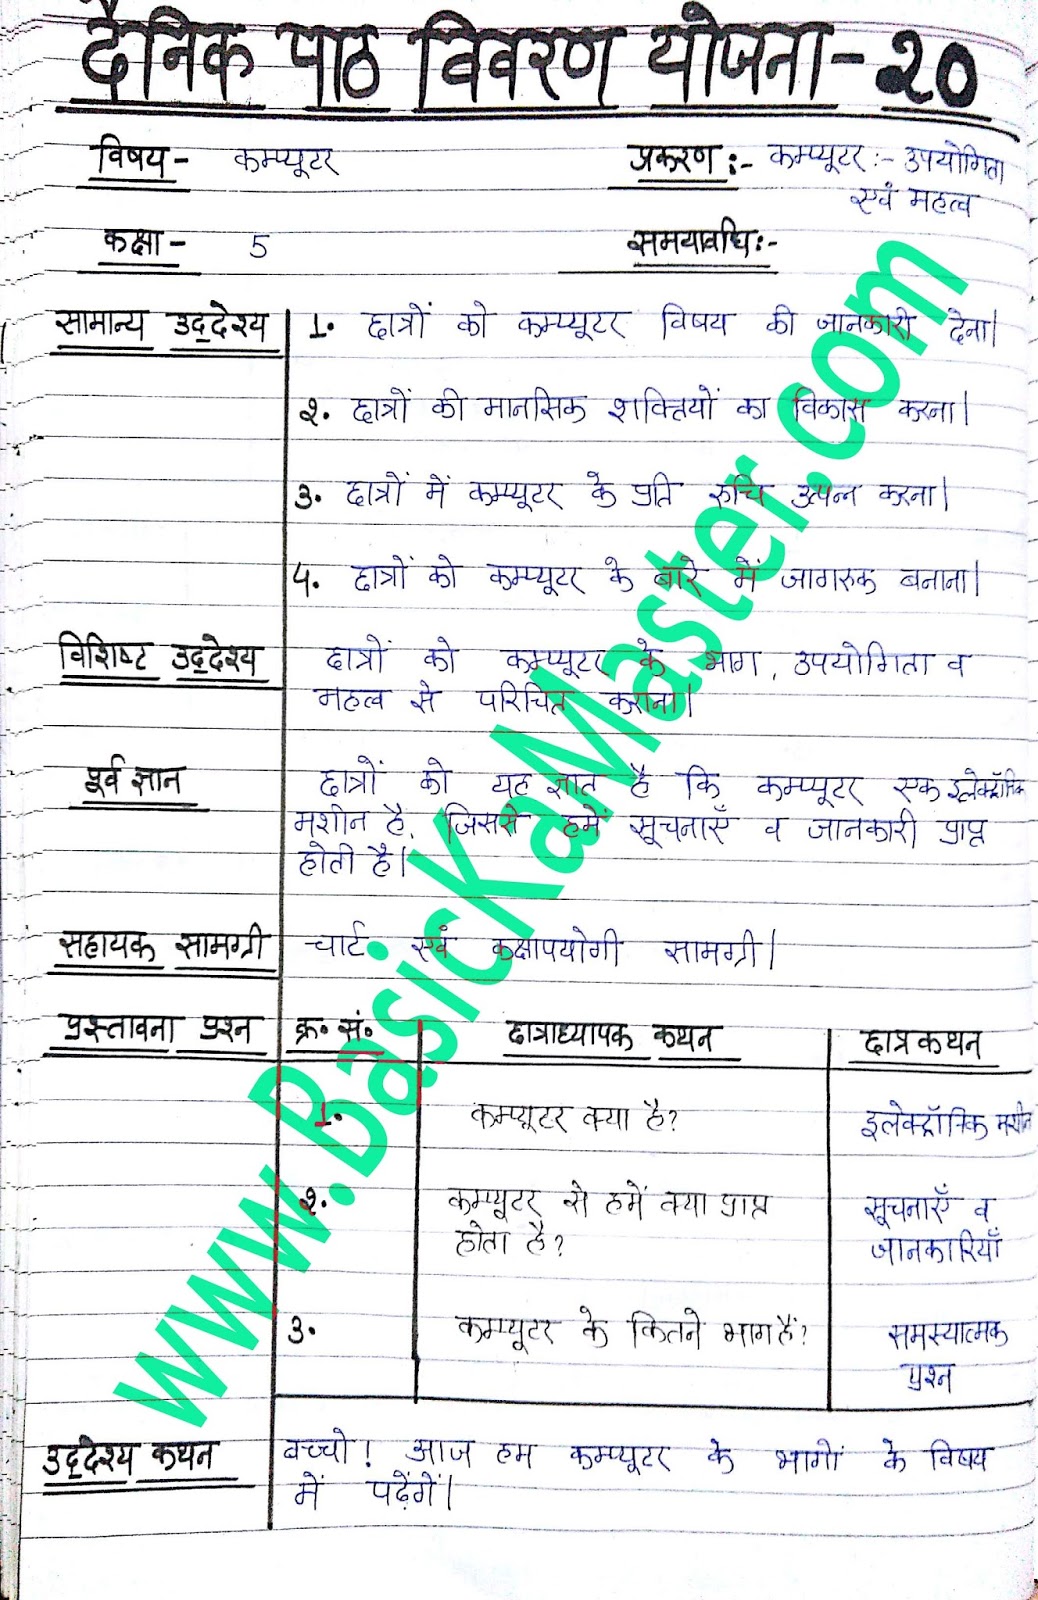 दैनिक पाठ विवरण योजना - २०
विषय - कम्प्यूटर
प्रकरण :- कम्प्यूटर :- उपयोगिता
एवं महत्व
कक्षा - 5
समयावधि :-
सामान्य उद्देश्य
1. छात्रों को कम्प्यूटर विषय की जानकारी देना।
२. छात्रों की मानसिक शक्तियों का विकास करना।
३. छात्रों में कम्प्यूटर के प्रति रुचि उत्पन्न करना।
4. छात्रों को कम्प्यूटर के बारे में जागरुक बनाना।
विशिष्ट उद्देश्य
छात्रों को कम्प्यूटर के भाग, उपयोगिता व
महत्व से परिचित कराना।
पूर्व ज्ञान
छात्रों को यह ज्ञात है कि कम्प्यूटर एक इलेक्ट्रॉनिक
मशीन है, जिससे हमें सूचनाएँ व जानकारी प्राप्त
होती है।
सहायक सामग्री
चार्ट एवं कक्षापयोगी सामग्री।
प्रस्तावना प्रश्न क्र. सं. छात्राध्यापक कथन छात्रकथन
1. कम्प्यूटर क्या है? इलेक्ट्रॉनिक मशीन
२. कम्प्यूटर से हमें क्या प्राप्त सूचनाएँ व
होता है? जानकारियाँ
३. कम्प्यूटर के कितने भाग हैं? समस्यात्मक
प्रश्न
उद्देश्य कथन
बच्चो! आज हम कम्प्यूटर के भागों के विषय
में पढ़ेंगें।
www.BasicKaMaster.com